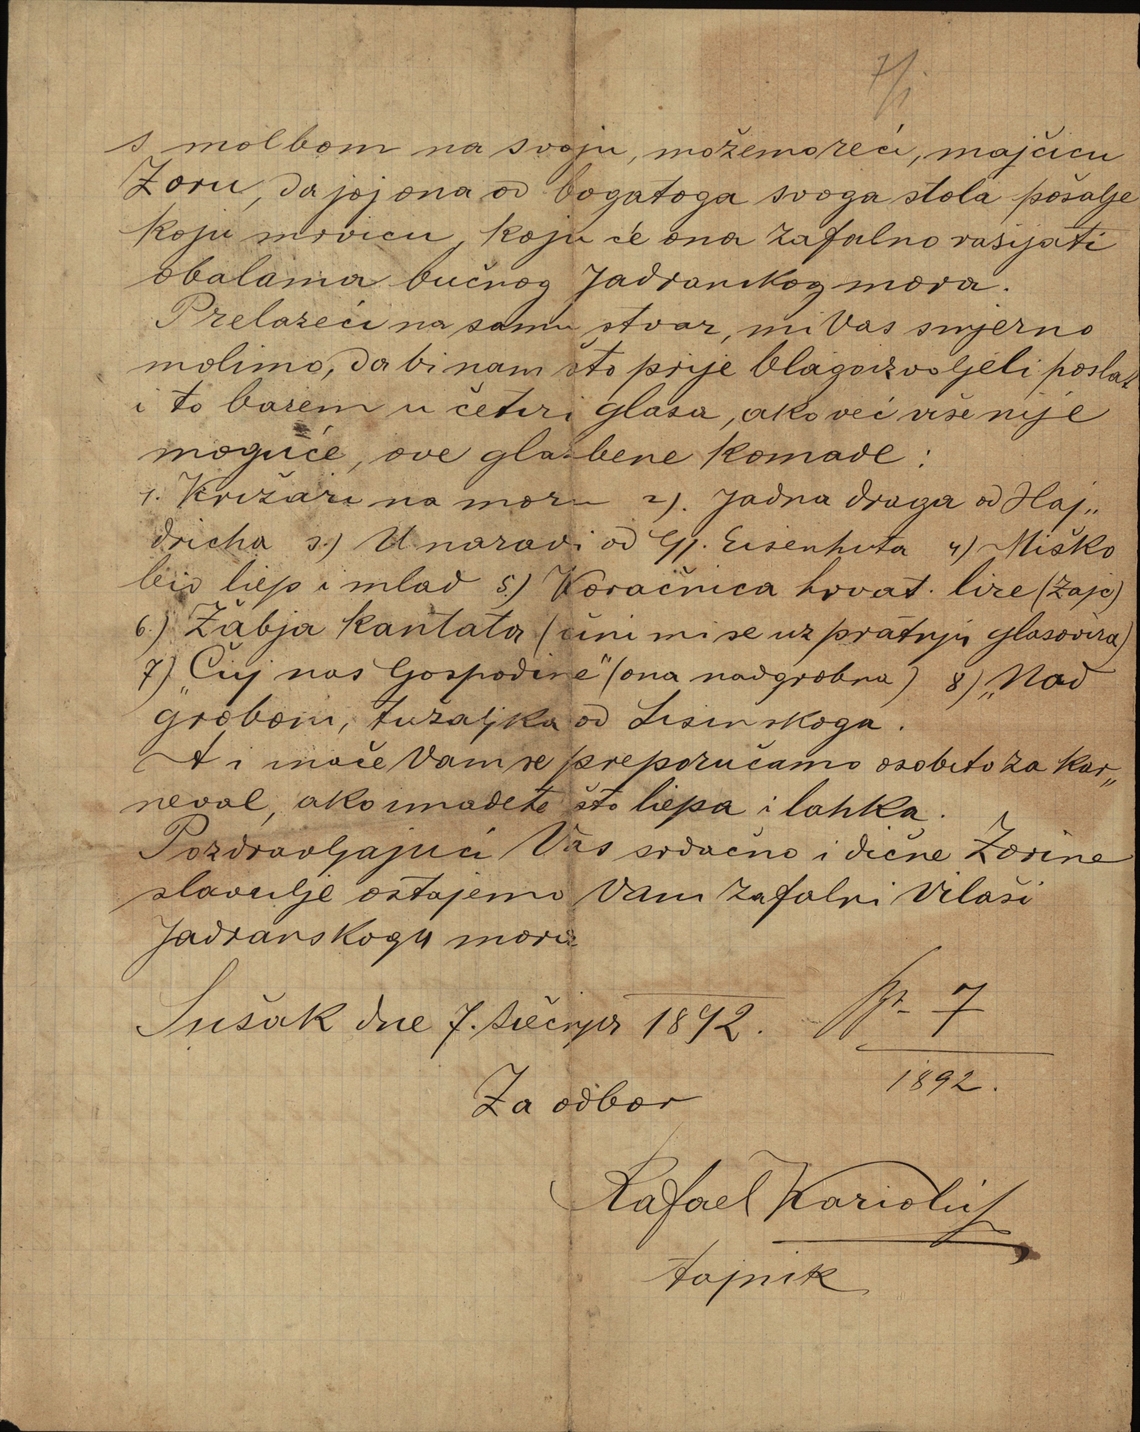 7/1
s molbom na svoju, možemo reći, majčicu
Zoru, da joj ona od bogatoga svoga stola pošalje
koju mrvicu, koju će ona zafalno rasijati
obalama bučnog Jadranskog mora.
Prelazeći na samu stvar, mi Vas smjerno
molimo, da bi nam što prije blagoizvoljeli poslat
i to barem u četiri glasa, ako već više nije
moguće, ove glasbene komade:
1. Križari na moru 2). Jadna draga od Haj„
dricha 3.) U naravi od Gj. Eisenhuta 4) Miško
bio liep i mlad 5.) Koračnica hrvat. lire (Zajc)
6.) Žabja kantata (čini mi se uz pratnju glasovira)
7) „Čuj nas Gospodine" (ona nadgrobna) 8) „Nad
grobom, tužaljka od Lisinskoga.
A i inače Vam se preporučamo osobito za kar„
neval, ako imadete što liepa i lahka.
Pozdravljajući Vas srdačno i dične Zorine
slavulje ostajemo Vam zafalni Vilaši
Jadranskoga mora
Sušak dne 7. Siečnja 1892. 7
1892.
Za odbor
Rafael
tajnik